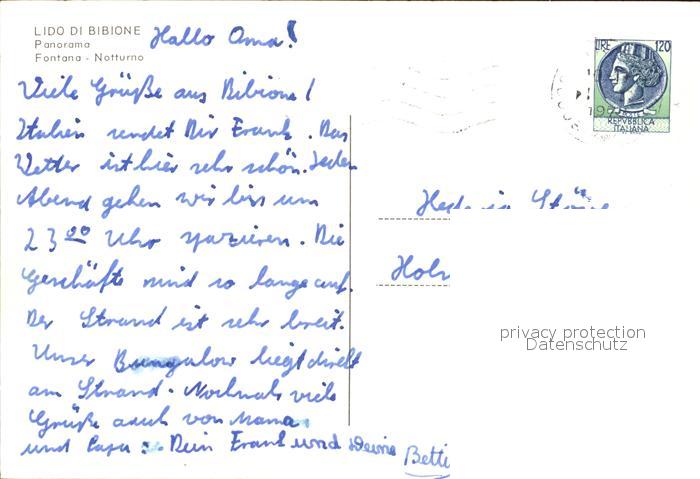 LIDO DI BIBIONE
Panorama
Fontana - Notturno
Hallo Oma!
Viele Grüße aus Bibione!
Italien sendet Dir Frank. Das
Wetter ist hier sehr schön. Jeden
Abend gehen wir bis um
23 00 Uhr spazieren. Die
Geschäfte sind so lange auf.
Der Strand ist sehr breit.
Unser Bungalow liegt direkt
am Strand. Nochmals viele
Grüße auch von Mama
und Papa. Dein Frank und Deine
Betti
LIRE 120
REPVBBLICA
ITALIANA
privacy protection
Datenschutz